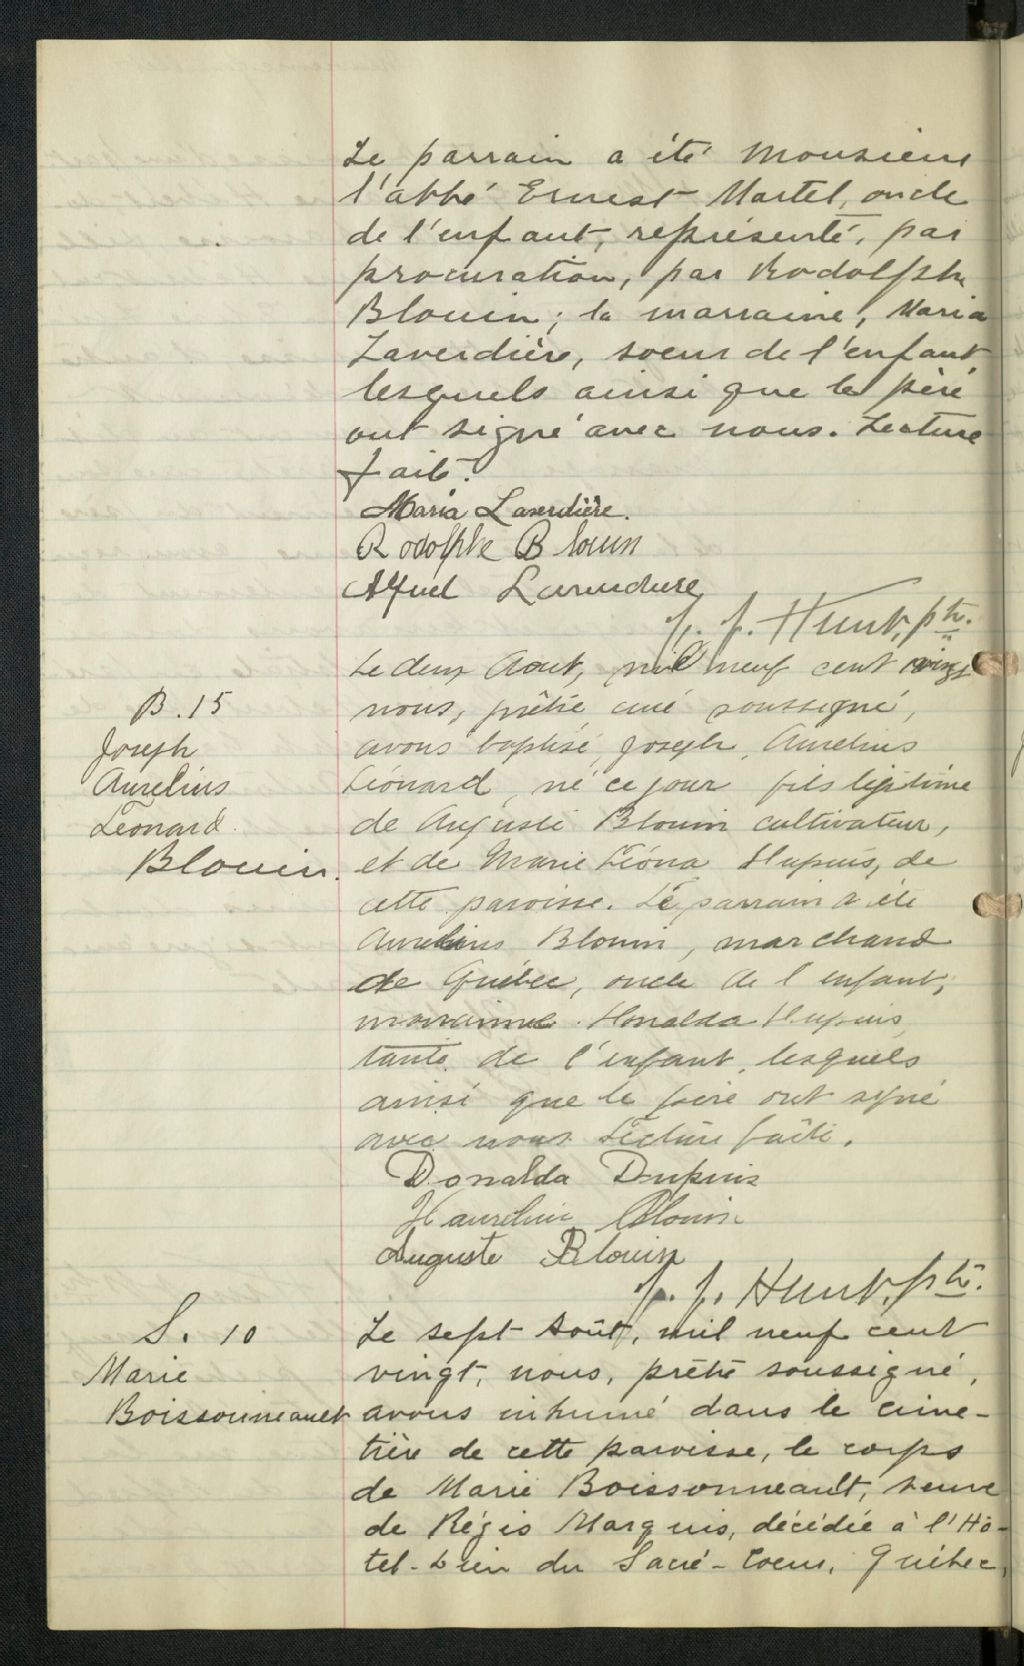 Le parrain a été Monsieur
l'abbé Ernest Martel, oncle
de l'enfant, représenté, par
procuration, par Rodolphe
Blouin; la marraine, Maria
Laverdière, soeur de l'enfant
lesquels ainsi que le père
ont signé avec nous. Lecture
faite.
Maria Laverdière.
Rodolphe Blouin
Laverdière
J. J. Hunt, ptr.
Le deux Aout, mil neuf cent vingt
B. 15
nous, prêtre curé soussigné,
Joseph
avons baptisé, Joseph, Aurelius
Aurelius
Léonard, né ce jour fils légitime
Léonard
de Auguste Blouin cultivateur,
Blouin.
et de Marie Léona Dupuis, de
cette paroisse. Le parrain a été
Aurelius Blouin, marchand
de Québec, oncle de l'enfant,
marraine Donalda Dupuis
tante de l'enfant, lesquels
ainsi que le père ont signé
avec nous. Lecture faite.
Donalda Dupuis
Haurelius Blouin
Auguste Blouin
J. J. Hunt, ptr.
S. 10
Le sept Août, mil neuf cent
Marie
vingt, nous, prêtre soussigné,
Boissonneault
avons inhumé dans le cime-
tière de cette paroisse, le corps
de Marie Boissonneault, veuve
de Régis Marquis, décédée à l'Hô-
tel-Dieu du Sacré-Coeur, Québec,